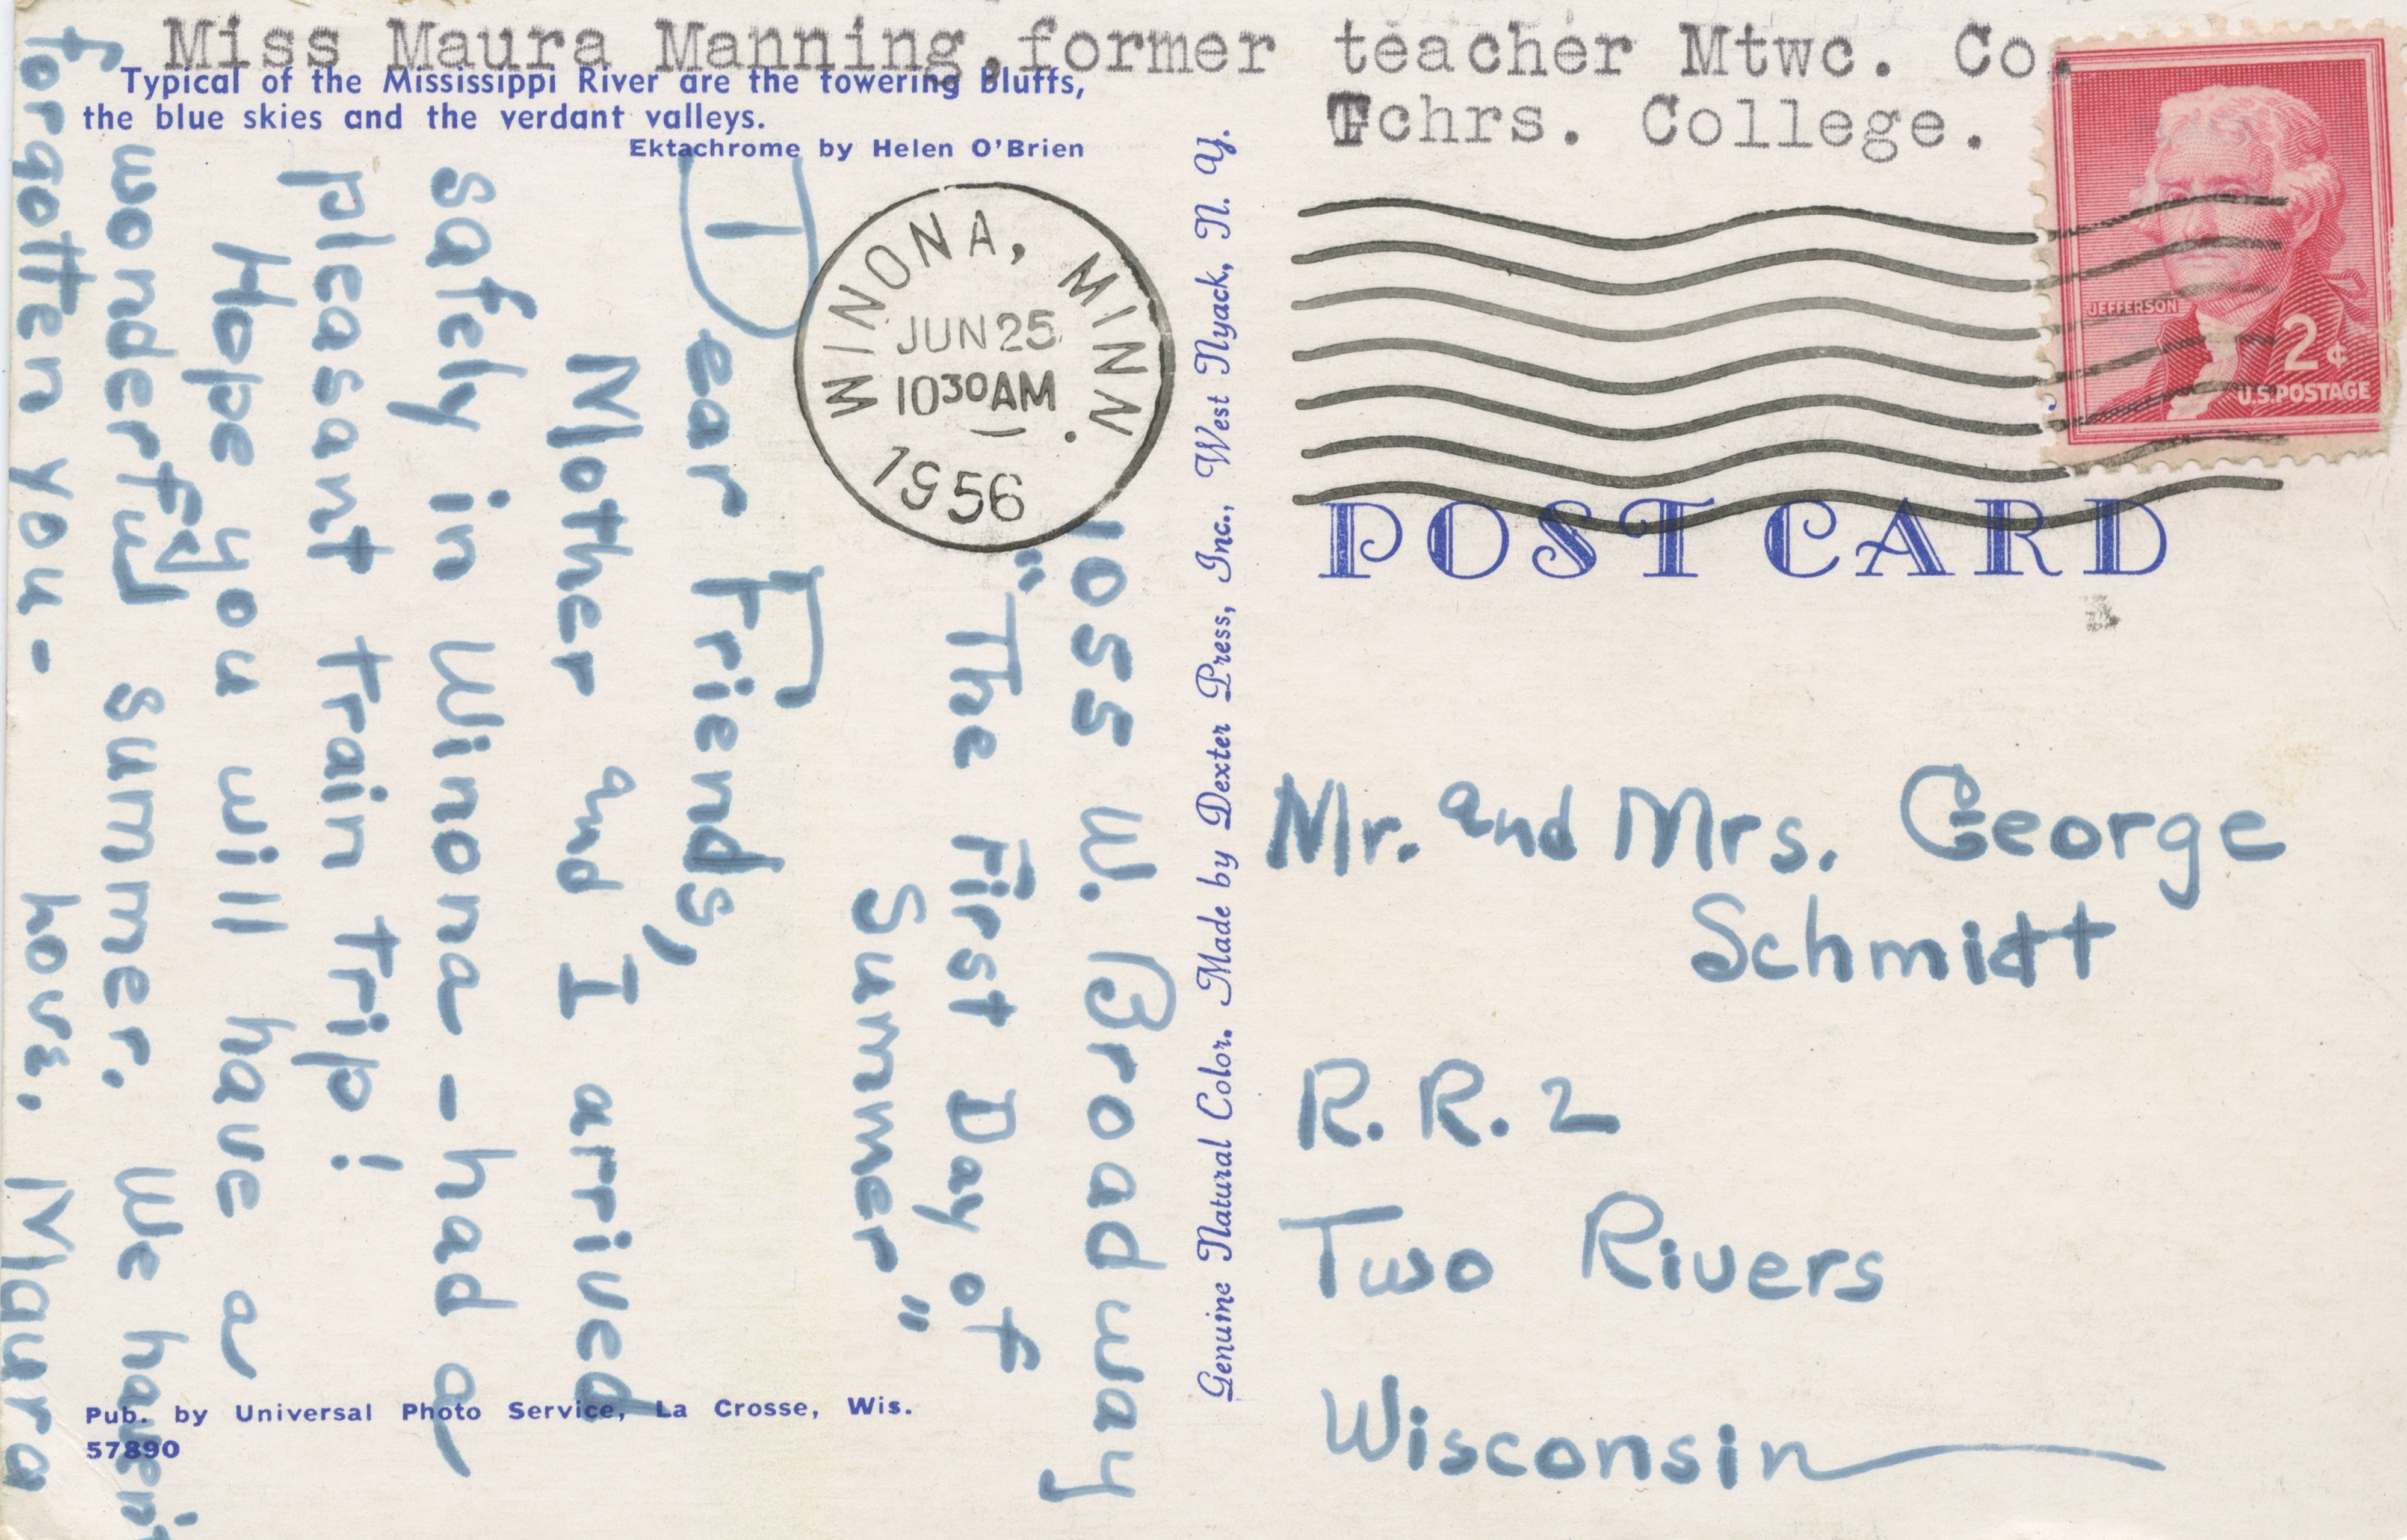 Miss Maura Manning, former teacher Mtwc. Co.
Tchrs. College.
Typical of the Mississippi River are the towering bluffs,
the blue skies and the verdant valleys.
Ektachrome by Helen O'Brien
WINONA, MINN.
JUN 25
10 30 AM
1956
JEFFERSON
2¢
U.S. POSTAGE
POST CARD
1055 W. Broadway
"The First Day of
Summer"
Dear Friends,
Mother and I arrived
safely in Winona - had a
pleasant train trip!
Hope you will have a
wonderful summer. We haven't
forgotten you - Love, Maura
Genuine Natural Color. Made by Dexter Press, Inc., West Nyack, N. Y.
Mr. and Mrs. George
Schmitt
R. R. 2
Two Rivers
Wisconsin
Pub. by Universal Photo Service, La Crosse, Wis.
57890